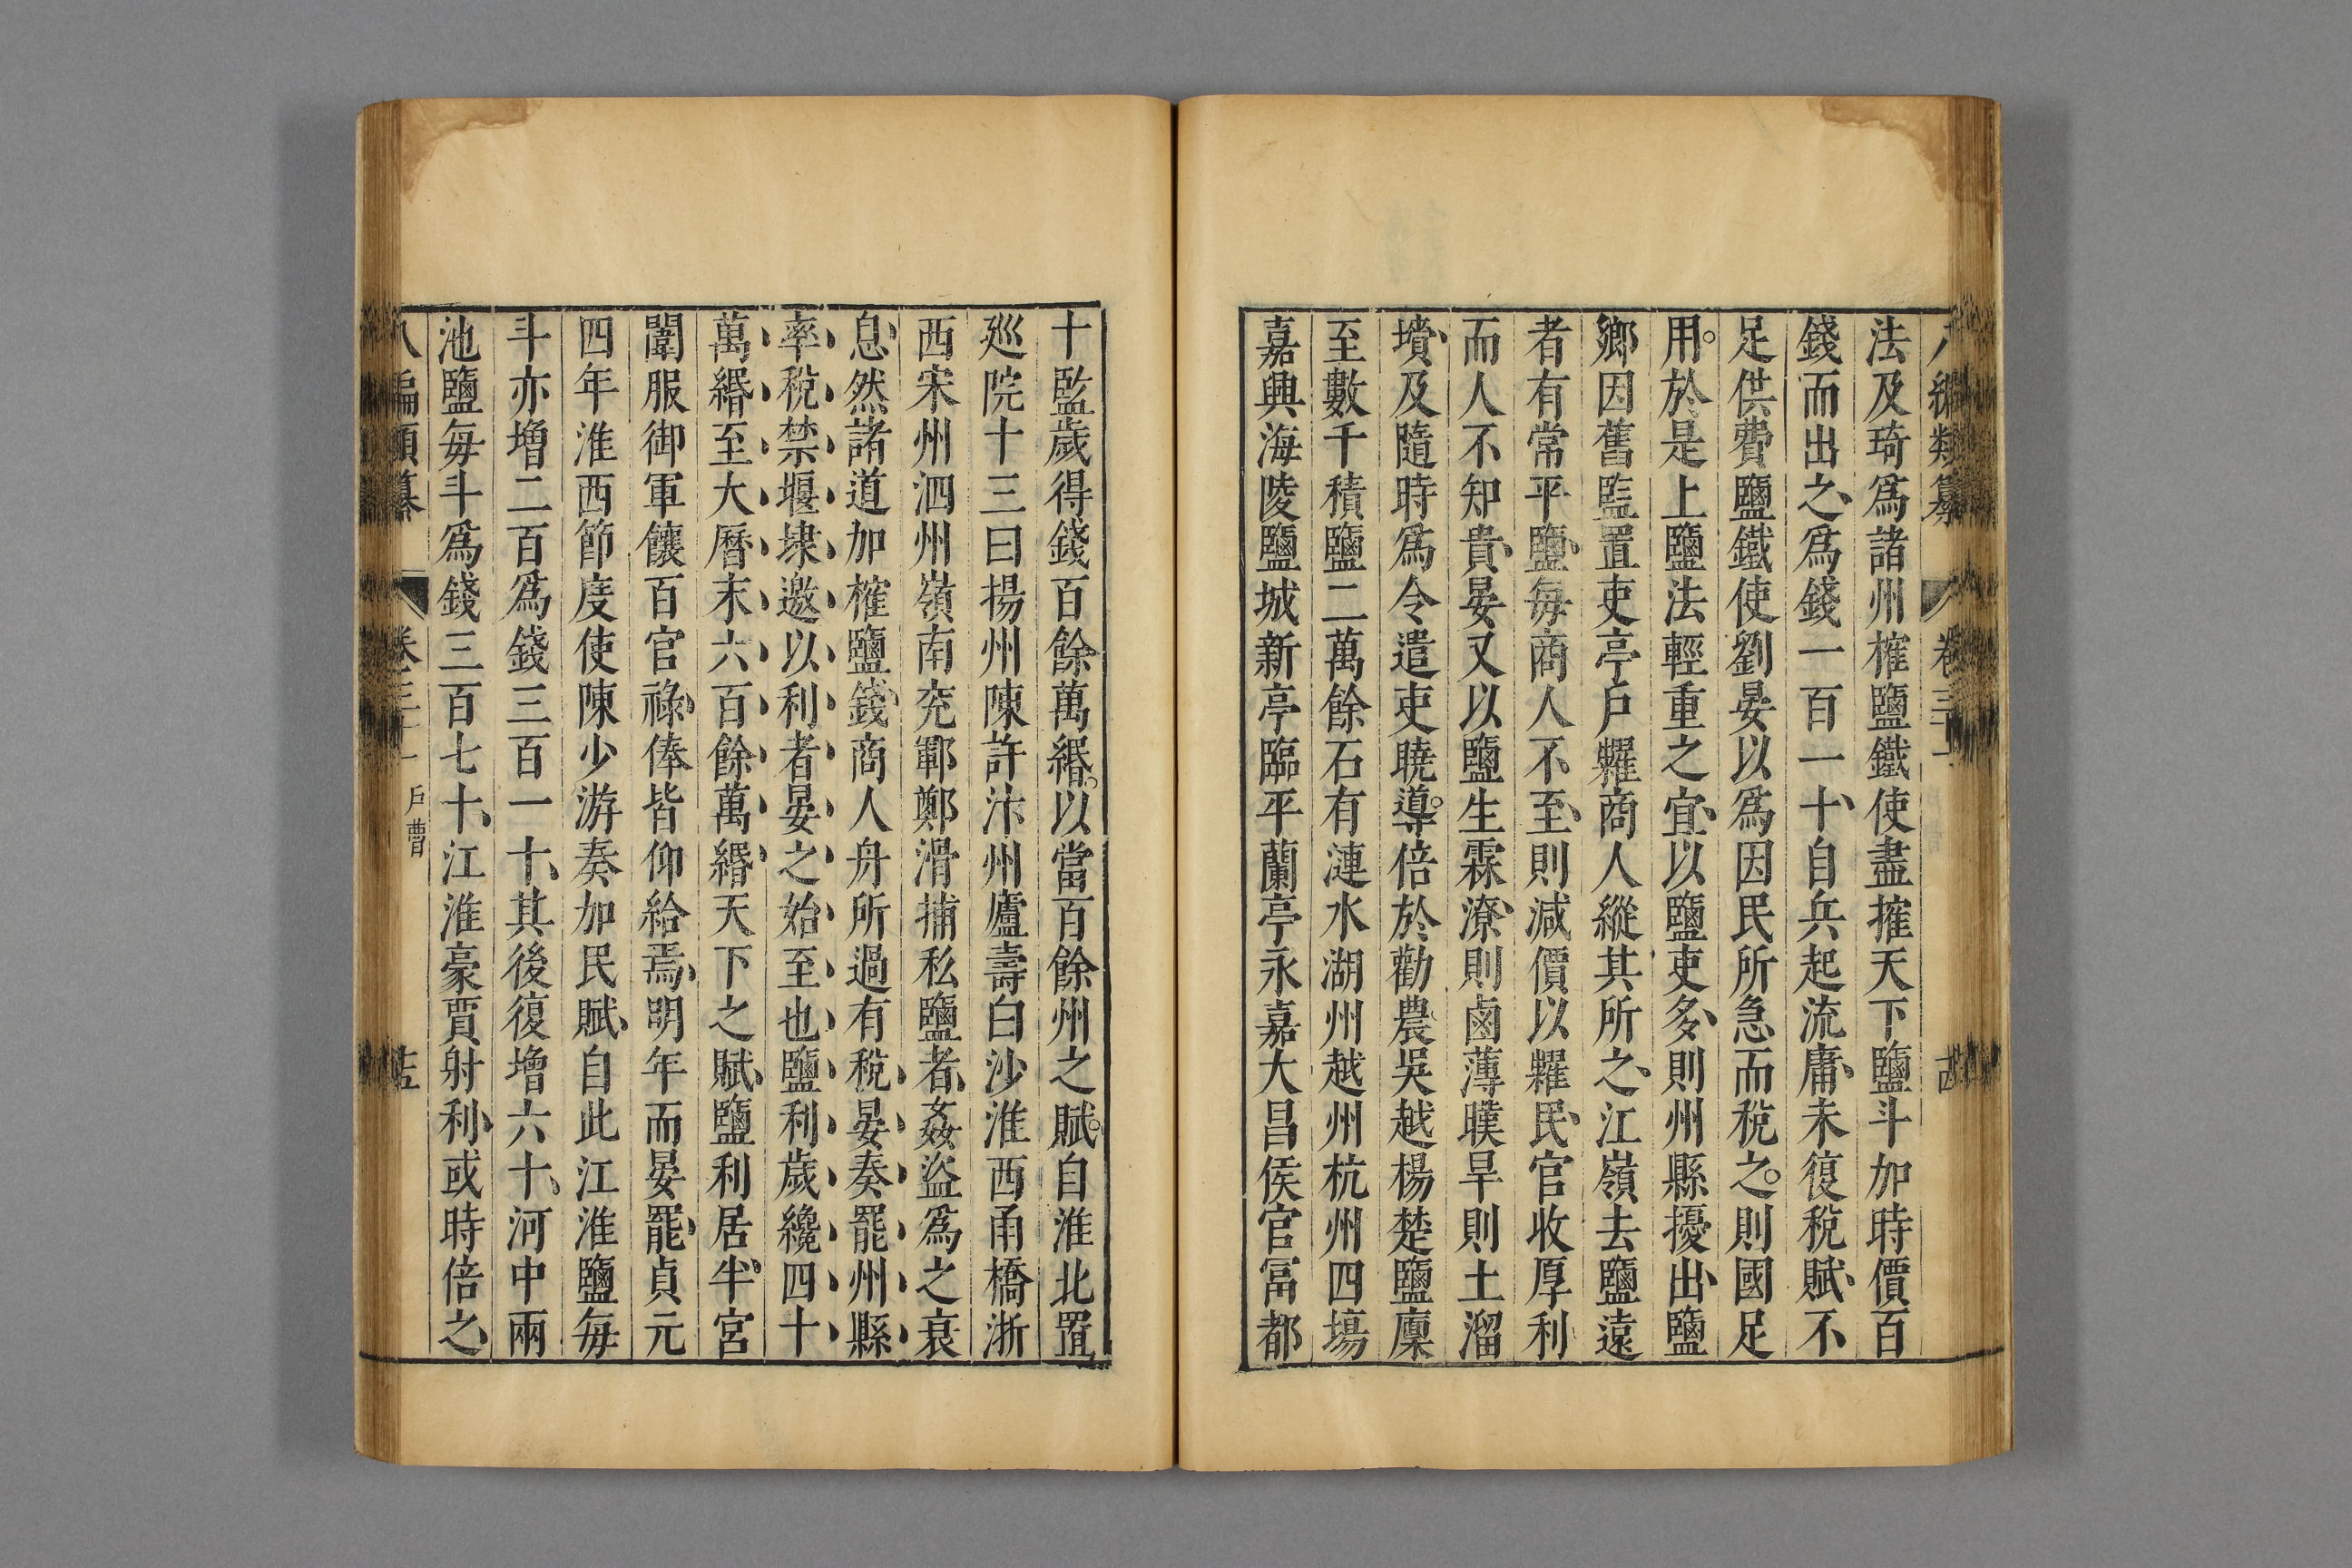 八編類纂 卷三十一 古
法及琦爲諸州榷鹽鐵使盡搉天下鹽斗加時價百
錢而出之爲錢一百一十自兵起流庸未復稅賦不
足供費鹽鐵使劉晏以爲因民所急而稅之則國足
用於是上鹽法輕重之宜以鹽吏多則州縣擾出鹽
鄉因舊監置吏亭戶糶商人縱其所之江嶺去鹽遠
者有常平鹽每商人不至則減價以糶民官收厚利
而人不知貴晏又以鹽生霖潦則鹵薄暵旱則土溜
墳及隨時爲令遣吏曉導倍於勸農吳越楊楚鹽廩
至數千積鹽二萬餘石有漣水湖州越州杭州四塲
嘉興海陵鹽城新亭臨平蘭亭永嘉大昌侯官冨都
十監歲得錢百餘萬緡以當百餘州之賦自淮北置
廵院十三曰揚州陳許汴州廬壽白沙淮西甬橋浙
西宋州泗州嶺南兖鄆鄭滑捕私鹽者姦盜爲之衰
息然諸道加榷鹽錢商人舟所過有稅晏奏罷州縣
率稅禁堰埭邀以利者晏之始至也鹽利歲纔四十
萬緡至大曆末六百餘萬緡天下之賦鹽利居半宮
闈服御軍饟百官祿俸皆仰給焉明年而晏罷貞元
四年淮西節度使陳少游奏加民賦自此江淮鹽每
斗亦增二百爲錢三百一十其後復增六十河中兩
池鹽每斗爲錢三百七十江淮豪賈射利或時倍之
八編類纂 卷三十一 戶曹